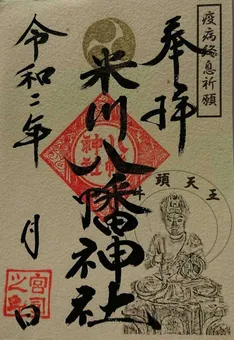 疫病終息祈願
奉拝
米川八幡神社
八幡神社
牛頭天王
令和二年 月 日
宮司之印